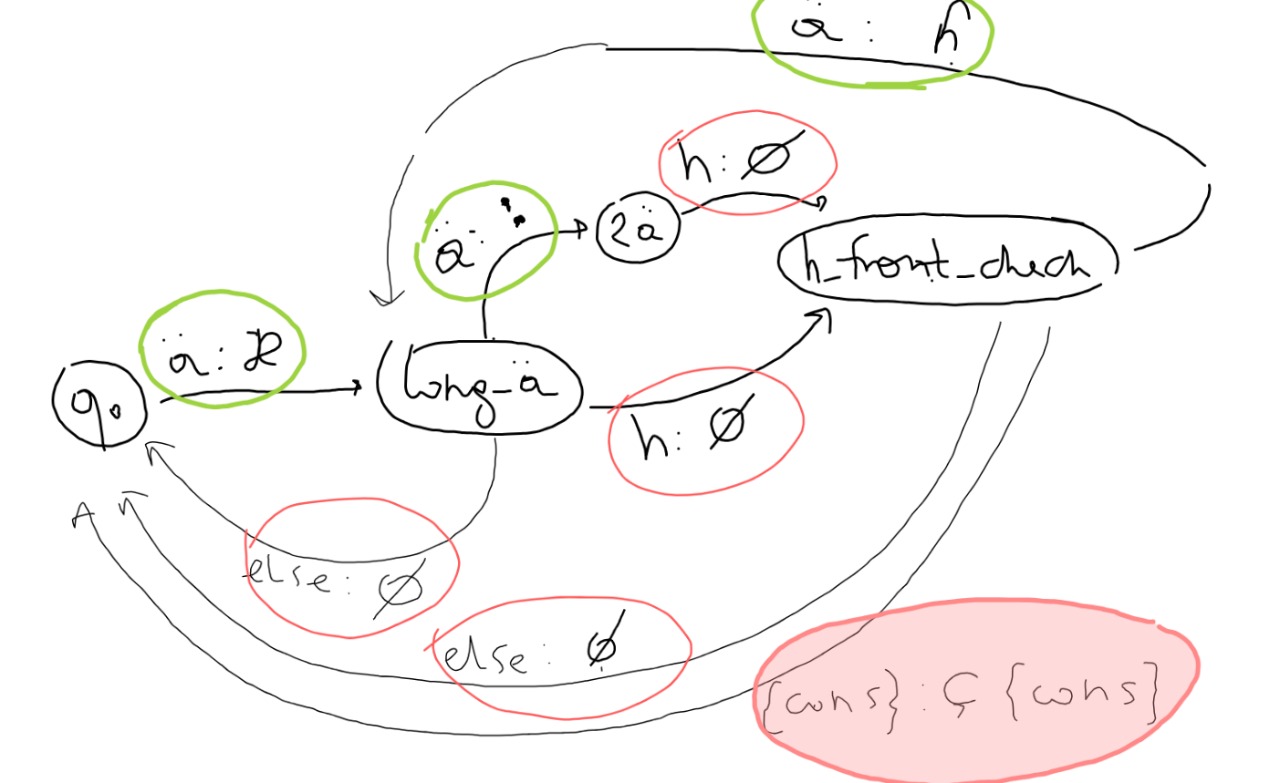 ä : ɦ
h : ∅
ä : ː
2ä
h_front_check
ä : æ
q₀
long_ä
h : ∅
else : ∅
else : ∅
{cons} : ç {cons}